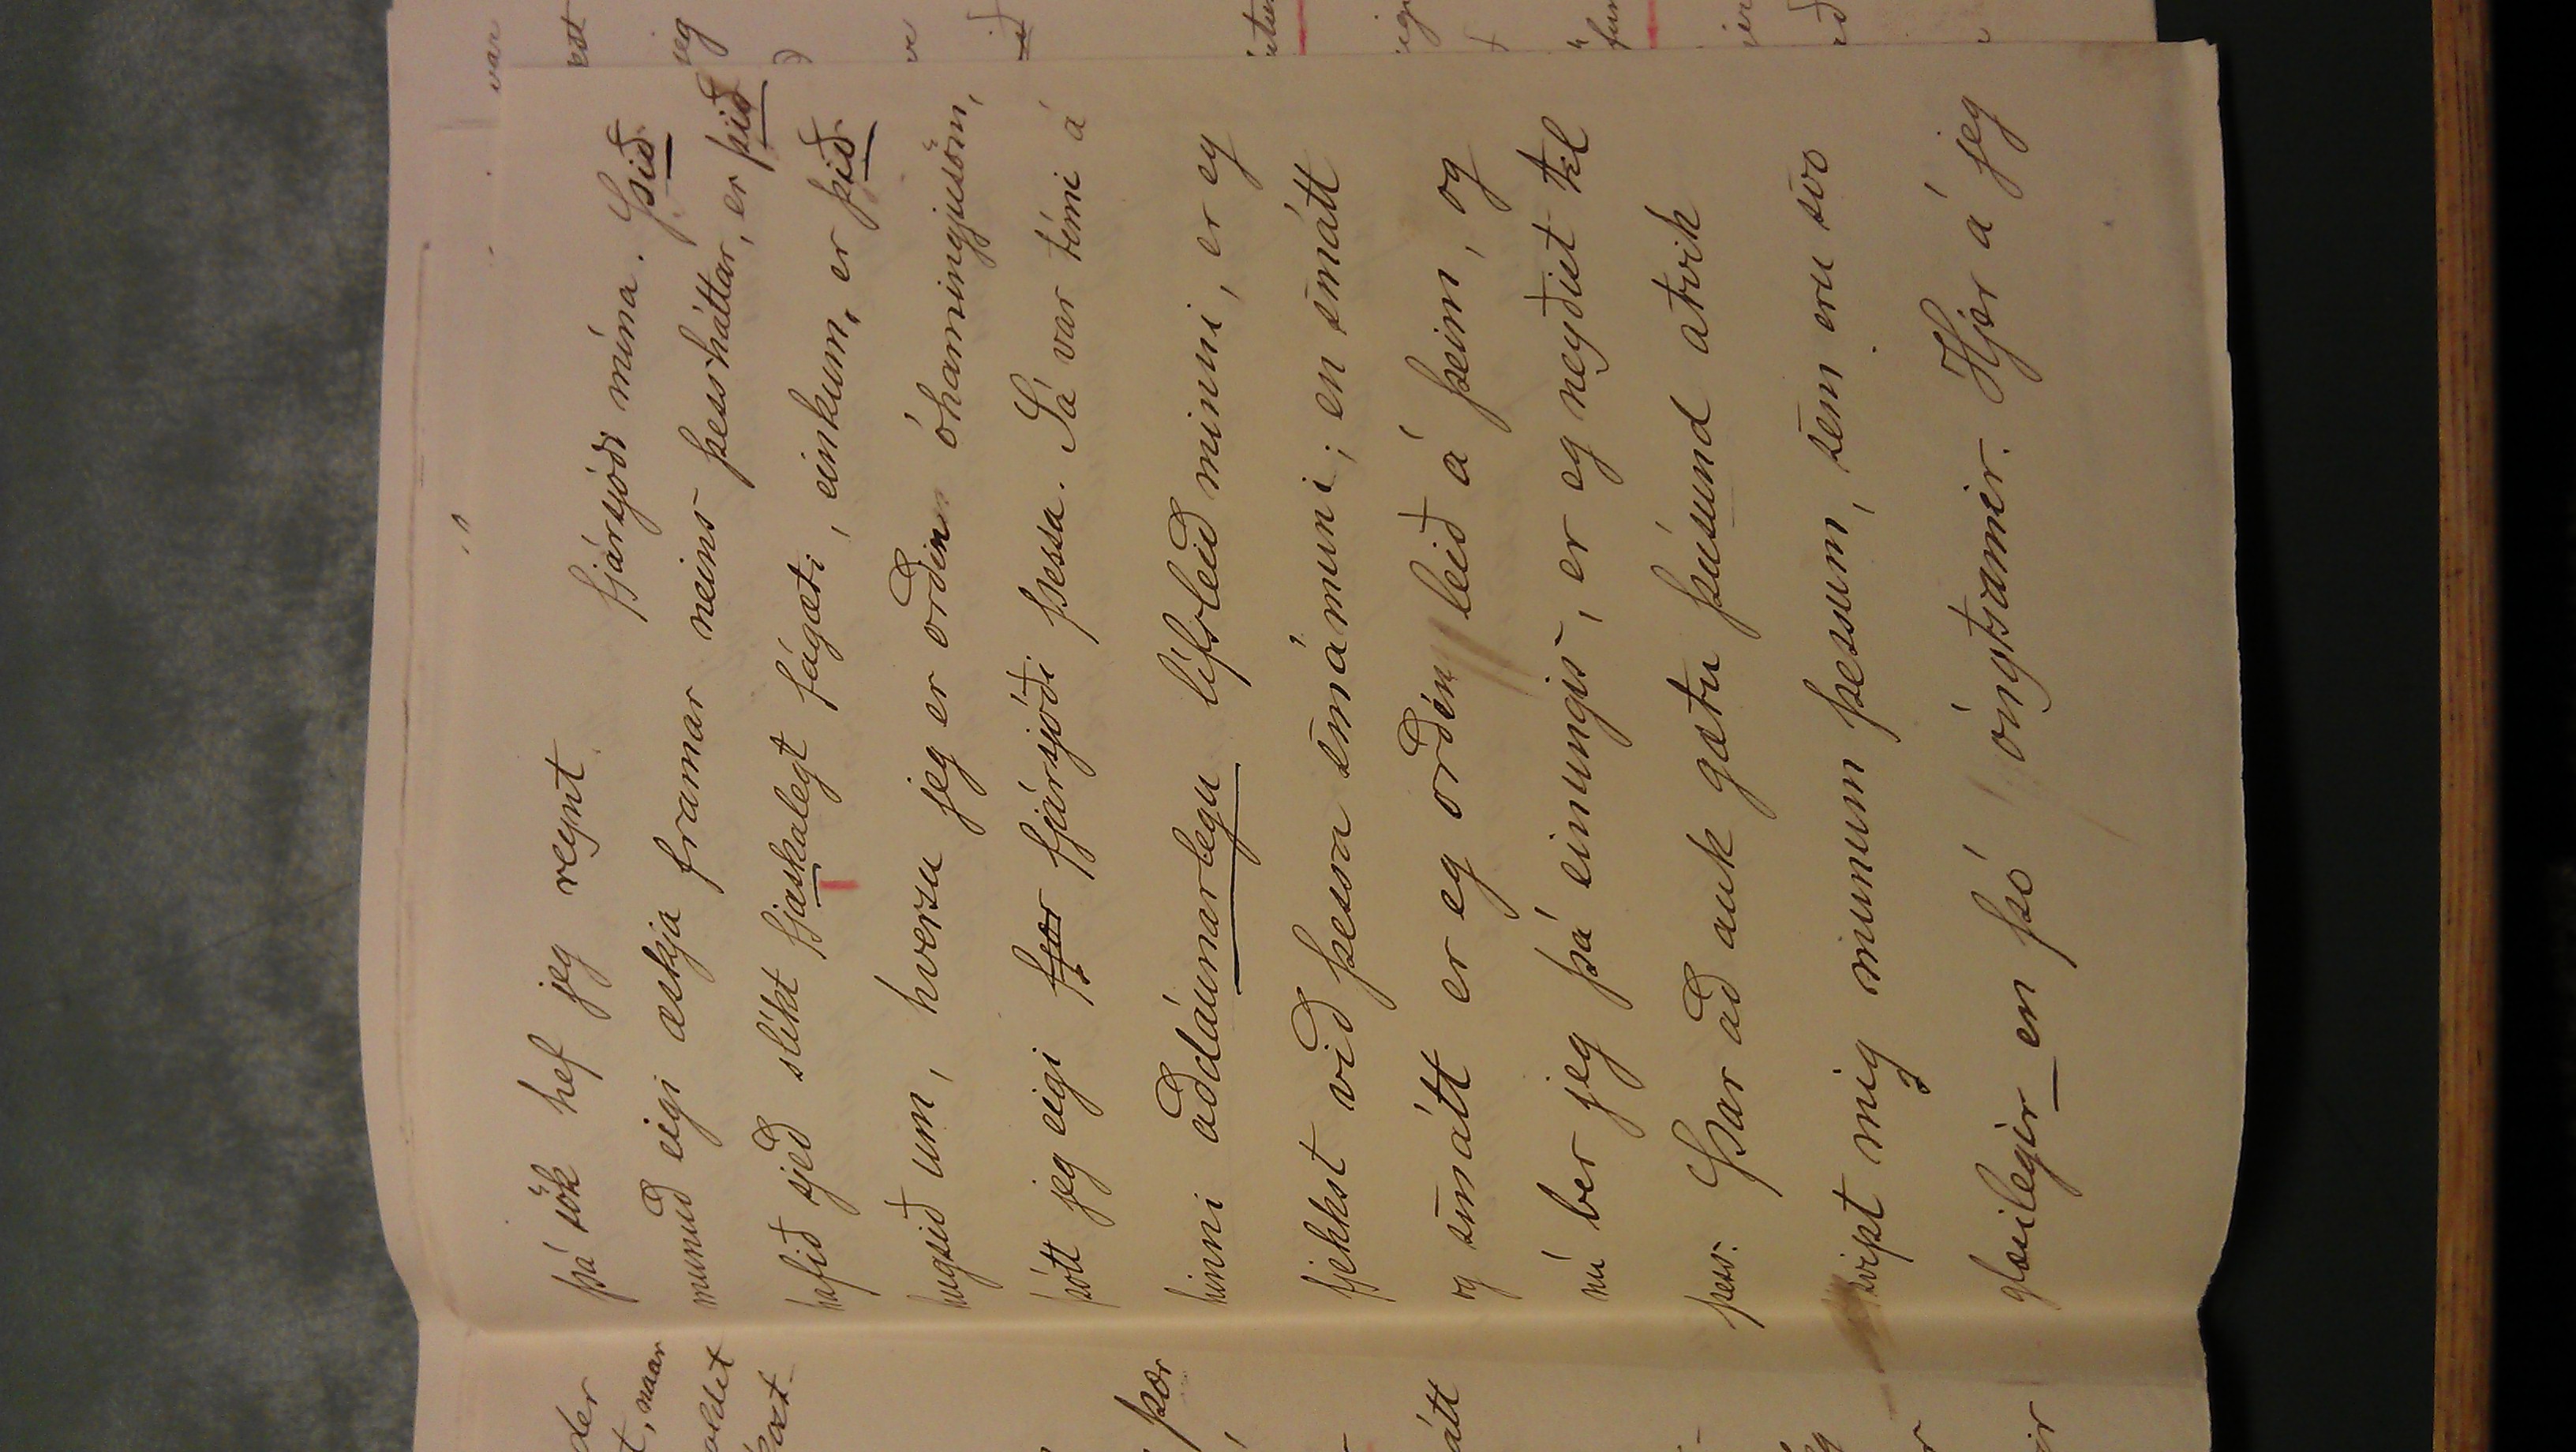 þá sök hef jeg reynt fjársjóði mína. Þið
munuð eigi æskja framar neins þessháttar, er þið
hafið sjeð slíkt fjaskalegt fágæti, einkum, er þið
hugsið um, hversu jeg er orðin óhamingjusöm,
þótt jeg eigi fjár fjársjóði þessa. Sá var tími á
hinni aðdáunarlegu lífsleið minni, er eg
fjekkst við þessa smámuni; en smátt
og smátt er eg orðin leið á þeim, og
nú ber jeg þá einungis, er eg neyðist til
þess. Þar að auk gætu þúsund atvik
svipt mig munum þessum, sem eru svo
glæsilegir _ en þó ónýtsamir. Hjer á jeg
der
naar
þær
átt
var
jeg